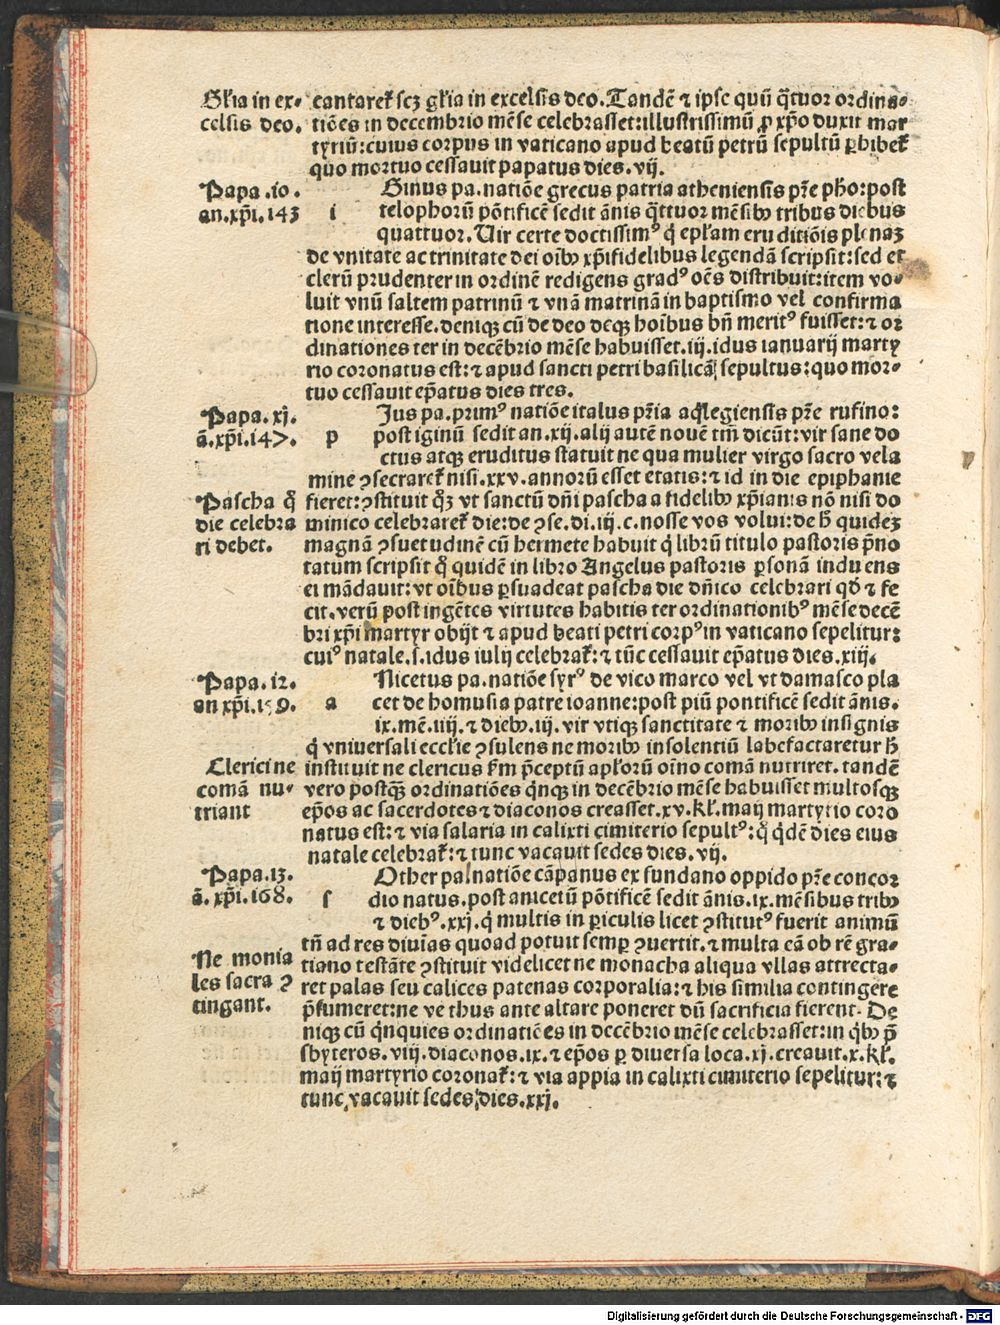 Gl'ia in ex-
celsis deo.
cantaret' scꝫ gl'ia in excelsis deo. Tandē ⁊ ipse quū q̄tuor ordina-
tiōes in decembrio mēse celebrasset: illustrissimū ꝓ xp̄o duxit mar
tyriū: cuius corpus in vaticano apud beatū petrū sepultū ꝑhibet'
quo mortuo cessauit papatus dies. vij.
Papa .10.
an. xp̄i. 143
i
Ginus pa. natiōe grecus patria atheniensis pr̄e pho: post
telophorū pōtificē sedit ānis q̄ttuor mēsibꝰ tribus diebus
quattuor. Uir certe doctissimꝰ q̇ epl'am eruditiōis plenaꝫ
de vnitate ac trinitate dei oībꝰ xp̄ifidelibus legendā scripsit: sed et
clerū prudenter in ordinē redigens gradꝰ oēs distribuit: item vo-
luit vnū saltem patrinū ⁊ vnā matrinā in baptismo vel confirma
tione interesse. deniqꝫ cū de deo deqꝫ hoībus bn̄ meritꝰ fuisset: ⁊ or
dinationes ter in decēbrio mēse habuisset. iij. idus ianuarij marty
rio coronatus est: ⁊ apud sancti petri basilicā sepultus: quo mor-
tuo cessauit ep̄atus dies tres.
Papa. xj.
ā. xp̄i. 147.
p
Ius pa. primꝰ natiōe italus pr̄ia aq̇legiensis pr̄e rufino:
post iginū sedit an. xij. alij autē nouē tm̄ dicūt: vir sane do
ctus atqꝫ eruditus statuit ne qua mulier virgo sacro vela
mine ꝯsecraret' nisi. xxv. annorū esset etatis: ⁊ id in die epiphanie
Pascha q̄
die celebra
ri debet.
fieret: ꝯstituit q̄ꝫ vt sanctū dn̄i pascha a fidelibꝰ xp̄ianis nō nisi do
minico celebraret' die: de ꝯse. di. iij. c. nosse vos volui: de h̄ quideꝫ
magnā ꝯsuetudinē cū hermete habuit q̇ librū titulo pastoris p̄no
tatum scripsit q̄ quidē in libro Angelus pastoris ꝑsonā induens
ei mādauit: vt oībus ꝑsuadeat pascha die dn̄ico celebrari qd̄ ⁊ fe
cit. verū post ingētes virtutes habitis ter ordinationibꝰ mēse decē
bri xp̄i martyr obijt ⁊ apud beati petri corpꝰ in vaticano sepelitur:
cuiꝰ natale. s. idus iulij celebrat': ⁊ tūc cessauit ep̄atus dies. xiij.
Papa. 12.
an xp̄i. 159.
a
Nicetus pa. natiōe syrꝰ de vico marco vel vt damasco pla
cet de homusia patre ioanne: post piū pontificē sedit ānis.
ix. mē. iiij. ⁊ diebꝰ. iij. vir vtiqꝫ sanctitate ⁊ moribꝰ insignis
q̇ vniuersali eccl'ie ꝯsulens ne moribꝰ insolentiū labefactaretur h̄
Clerici ne
comā nu-
triant
instituit ne clericus fm p̄ceptū apl'orū oīno comā nutriret. tandē
vero postq̄ꝫ ordinatiōes q̇nqꝫ in decēbrio mēse habuisset multosqꝫ
ep̄os ac sacerdotes ⁊ diaconos creasset. xv. kl'. maij martyrio coro
natus est: ⁊ via salaria in calixti cimiterio sepultꝰ: q̄ q̇dē dies eius
natale celebrat': ⁊ tunc vacauit sedes dies. vij.
Papa. 13.
ā. xp̄i. 168.
s
Other pa natiōe cāpanus ex fundano oppido pr̄e concor
dio natus. post anicetū pōtificē sedit ānis. ix. mēsibus tribꝰ
⁊ diebꝰ. xxj. q̇ multis in ꝑiculis licet ꝯstitutꝰ fuerit animū
tn̄ ad res diuīas quoad potuit semꝑ ꝯuertit. ⁊ multa cā ob rē gra-
Ne monia
les sacra ꝯ
tingant.
tiano testāte ꝯstituit videlicet ne monacha aliqua vllas attrecta-
ret palas seu calices patenas corporalia: ⁊ his similia contingere
p̄sumeret: ne ve thus ante altare poneret dū sacrificia fierent. De
niqꝫ cū q̇nquies ordinatiōes in decēbrio mēse celebrasset: in q̇bꝰ p̄
sbyteros. viij. diaconos. ix. ⁊ ep̄os ꝑ diuersa loca. xj. creauit. x. kl'.
maij martyrio coronat': ⁊ via appia in calixti cimiterio sepelitur: ⁊
tunc vacauit sedes dies. xxj.
Digitalisierung gefördert durch die Deutsche Forschungsgemeinschaft - DFG